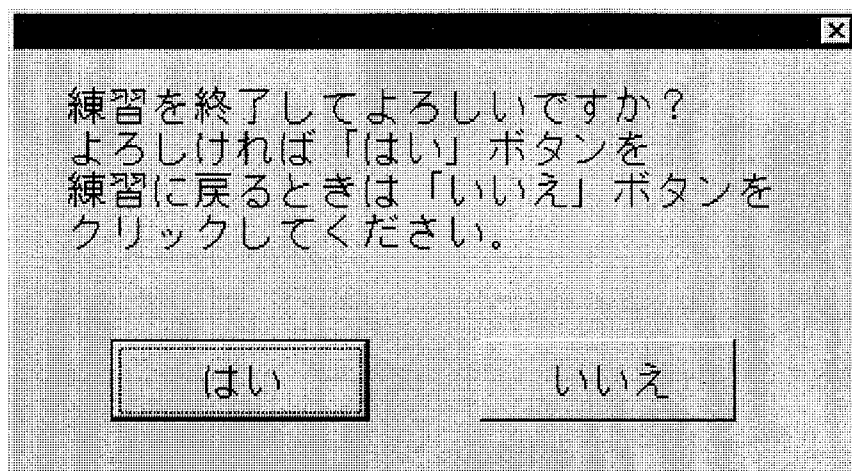 練習を終了してよろしいですか？
よろしければ「はい」ボタンを
練習に戻るときは「いいえ」ボタンを
クリックしてください。
はい
いいえ